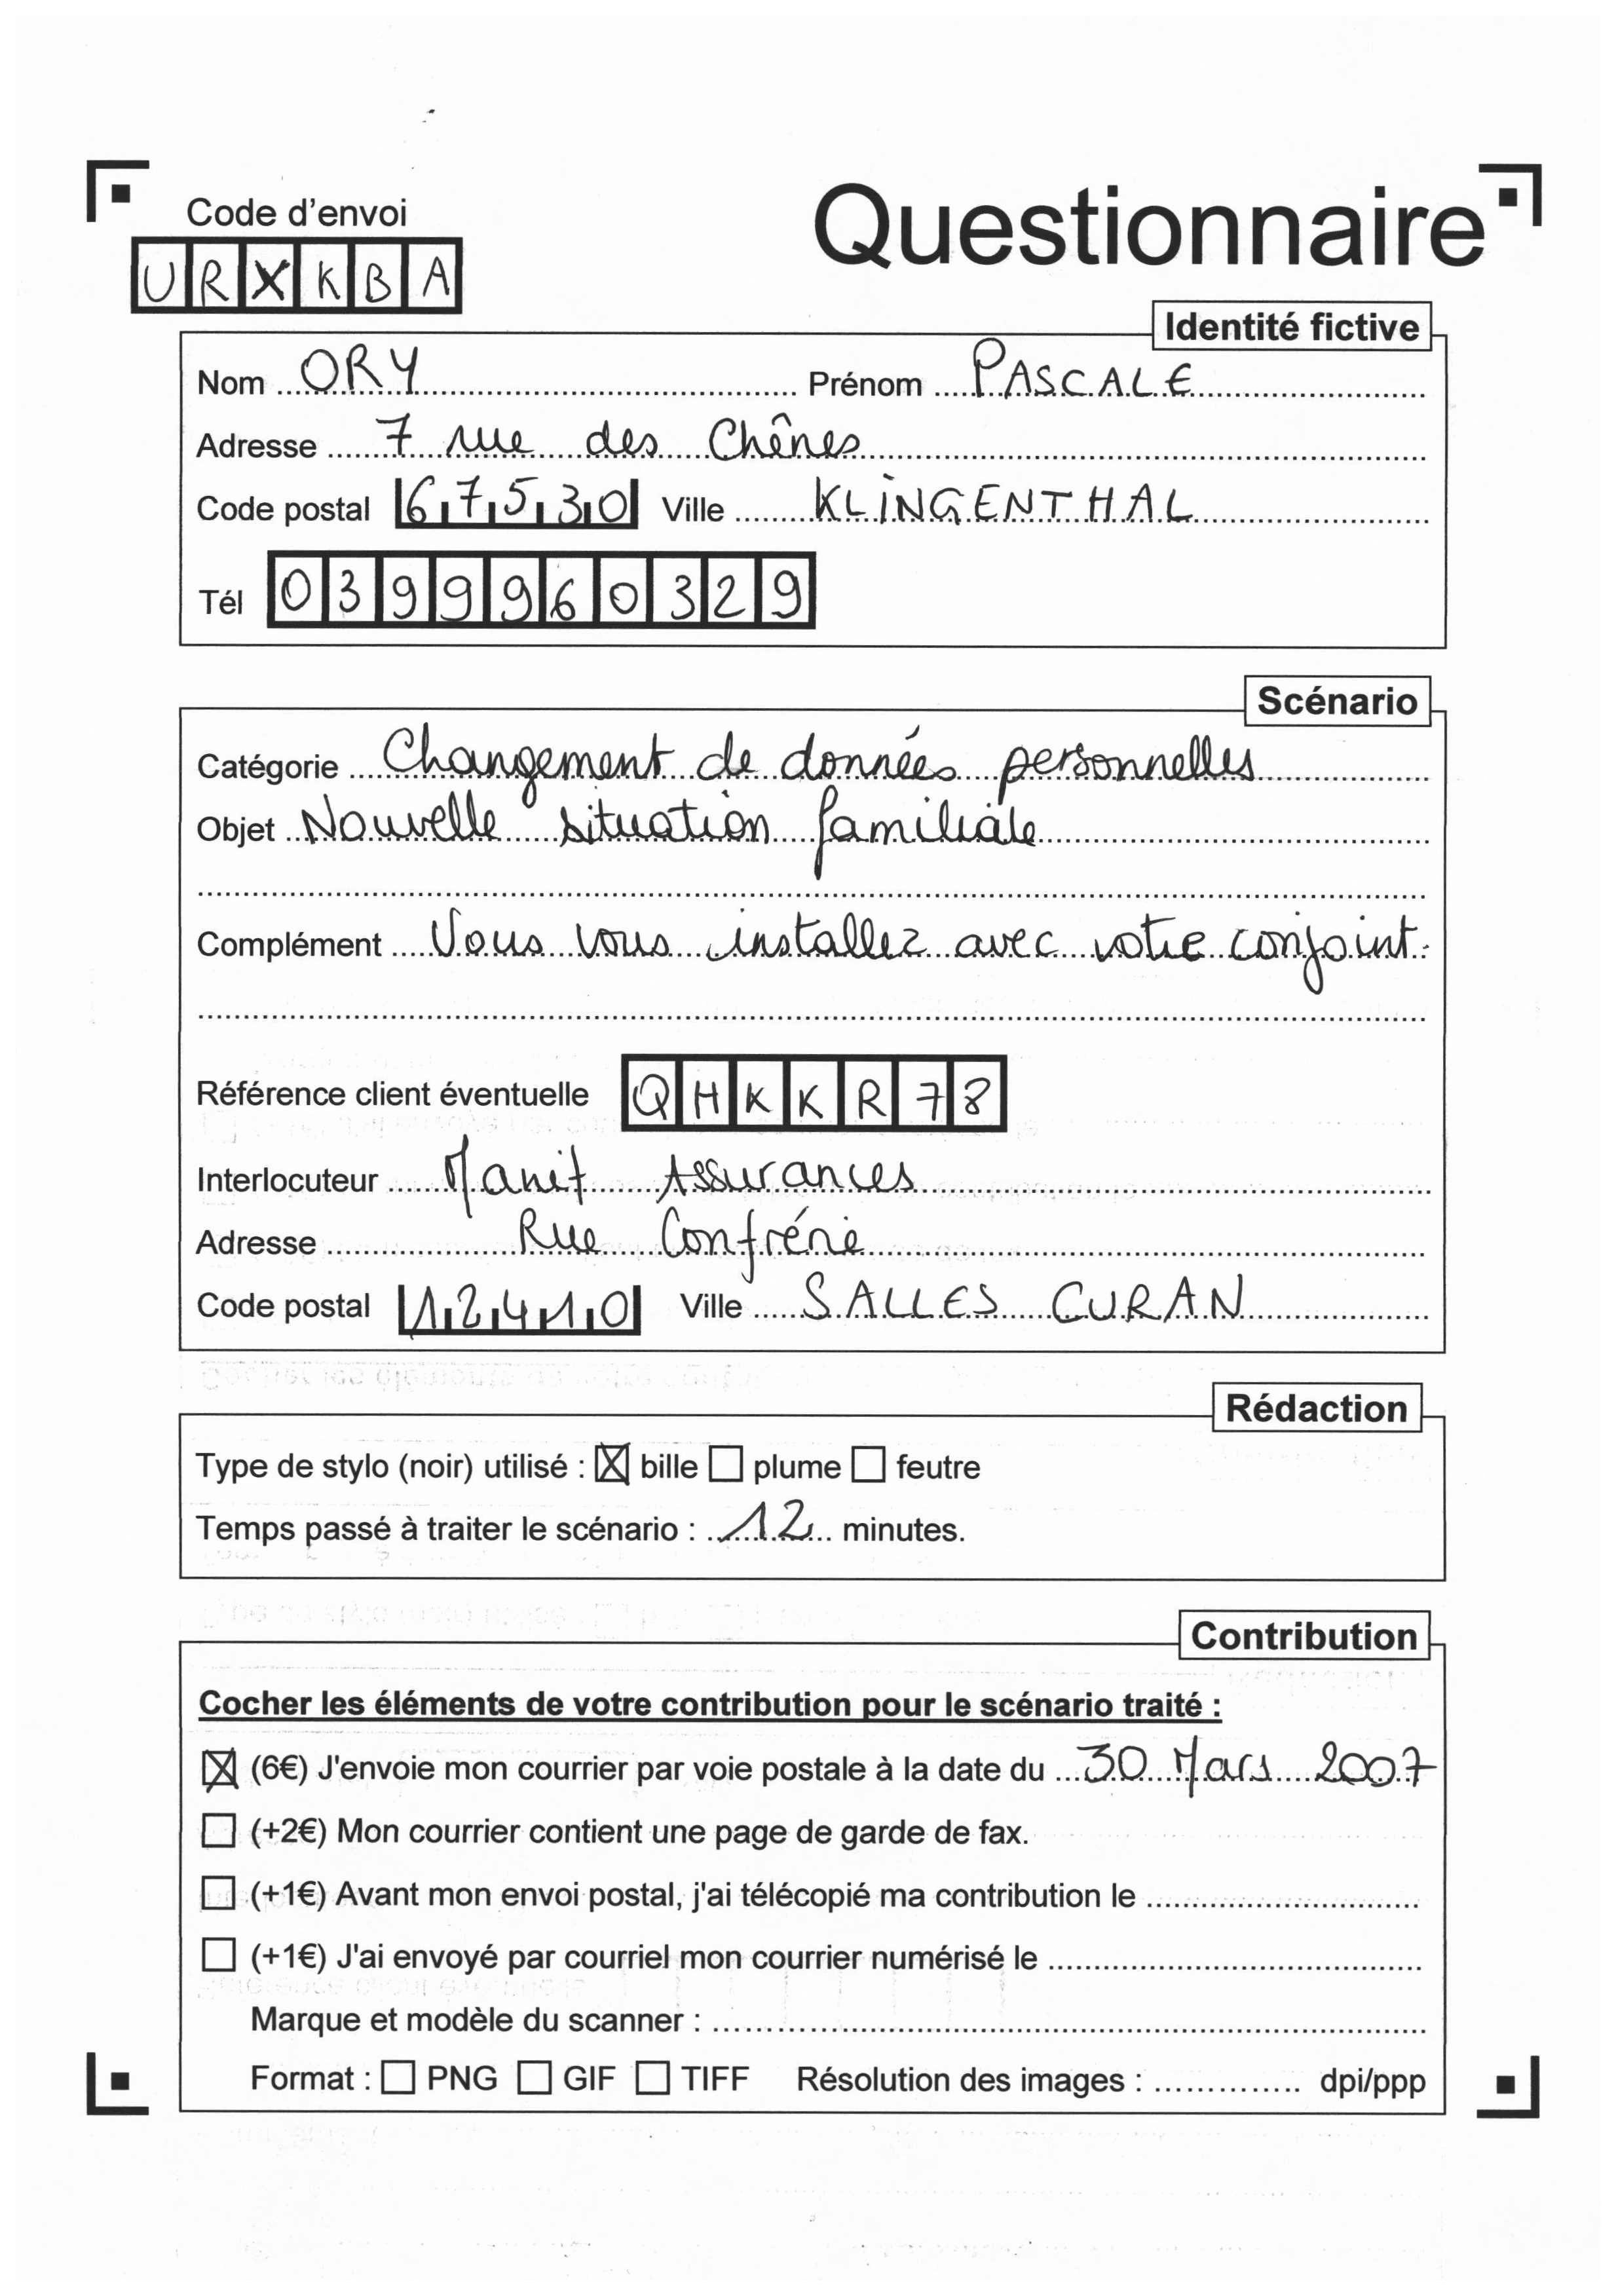 Questionnaire
Code d'envoi
URXKBA
Identité fictive
Nom ORY Prénom PASCALE
Adresse 7 rue des Chênes
Code postal 67530 Ville KLINGENTHAL
Tél 0399960329
Scénario
Catégorie Changement de données personnelles
Objet Nouvelle situation familiale
Complément Vous vous installez avec votre conjoint.
Référence client éventuelle QHKKR78
Interlocuteur Manit Assurances
Adresse Rue Confrérie
Code postal 12410 Ville SALLES CURAN
Rédaction
Type de stylo (noir) utilisé : ☒ bille ☐ plume ☐ feutre
Temps passé à traiter le scénario : 12 minutes.
Contribution
Cocher les éléments de votre contribution pour le scénario traité :
☒ (6€) J'envoie mon courrier par voie postale à la date du 30 Mars 2007
☐ (+2€) Mon courrier contient une page de garde de fax.
☐ (+1€) Avant mon envoi postal, j'ai télécopié ma contribution le
☐ (+1€) J'ai envoyé par courriel mon courrier numérisé le
Marque et modèle du scanner :
Format : ☐ PNG ☐ GIF ☐ TIFF Résolution des images : dpi/ppp